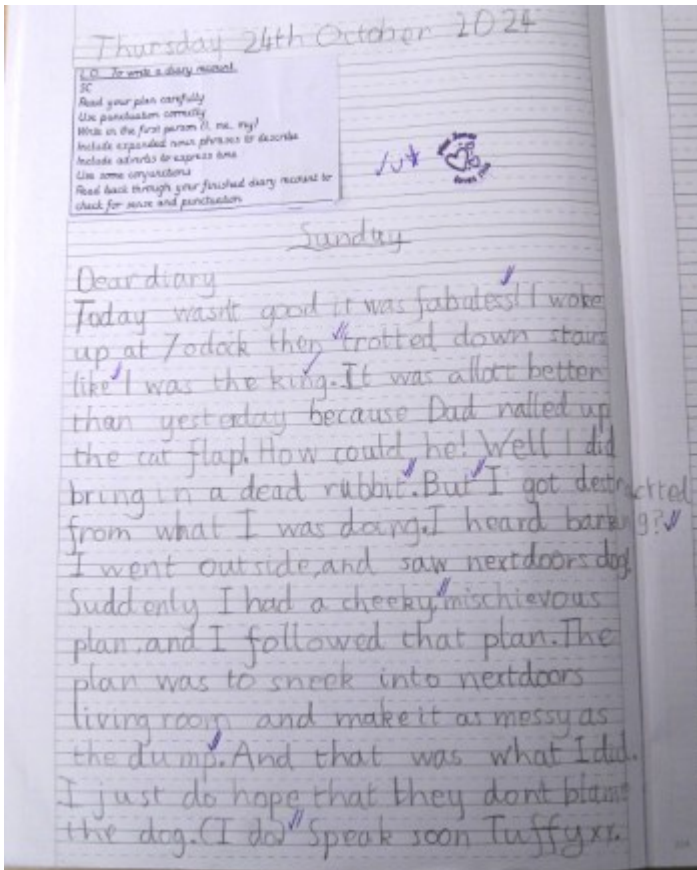 Thursday 24th October 2024
L.O. To write a diary recount.
SC
Read your plan carefully
Use punctuation correctly
Write in the first person (I, me, my)
Include expanded noun phrases to describe
Include adverbs to express time
Use some conjunctions
Read back through your finished diary recount to
check for sense and punctuation
Sunday
Dear diary
Today wasn't good it was fabuless! I woke
up at 7oclock then trotted down stairs
like I was the king. It was allott better
than yesterday because Dad nalled up
the cat flap. How could he! Well I did
bring in a dead rubbit. But I got destracted
from what I was doing. I heard barking?
I went outside, and saw nextdoors dog.
Suddenly I had a cheeky, mischievous
plan, and I followed that plan. The
plan was to sneek into nextdoors
living room and make it as messy as
the dump. And that was what I did.
I just do hope that they dont blame
the dog. (I do) Speak soon Tuffy xx.